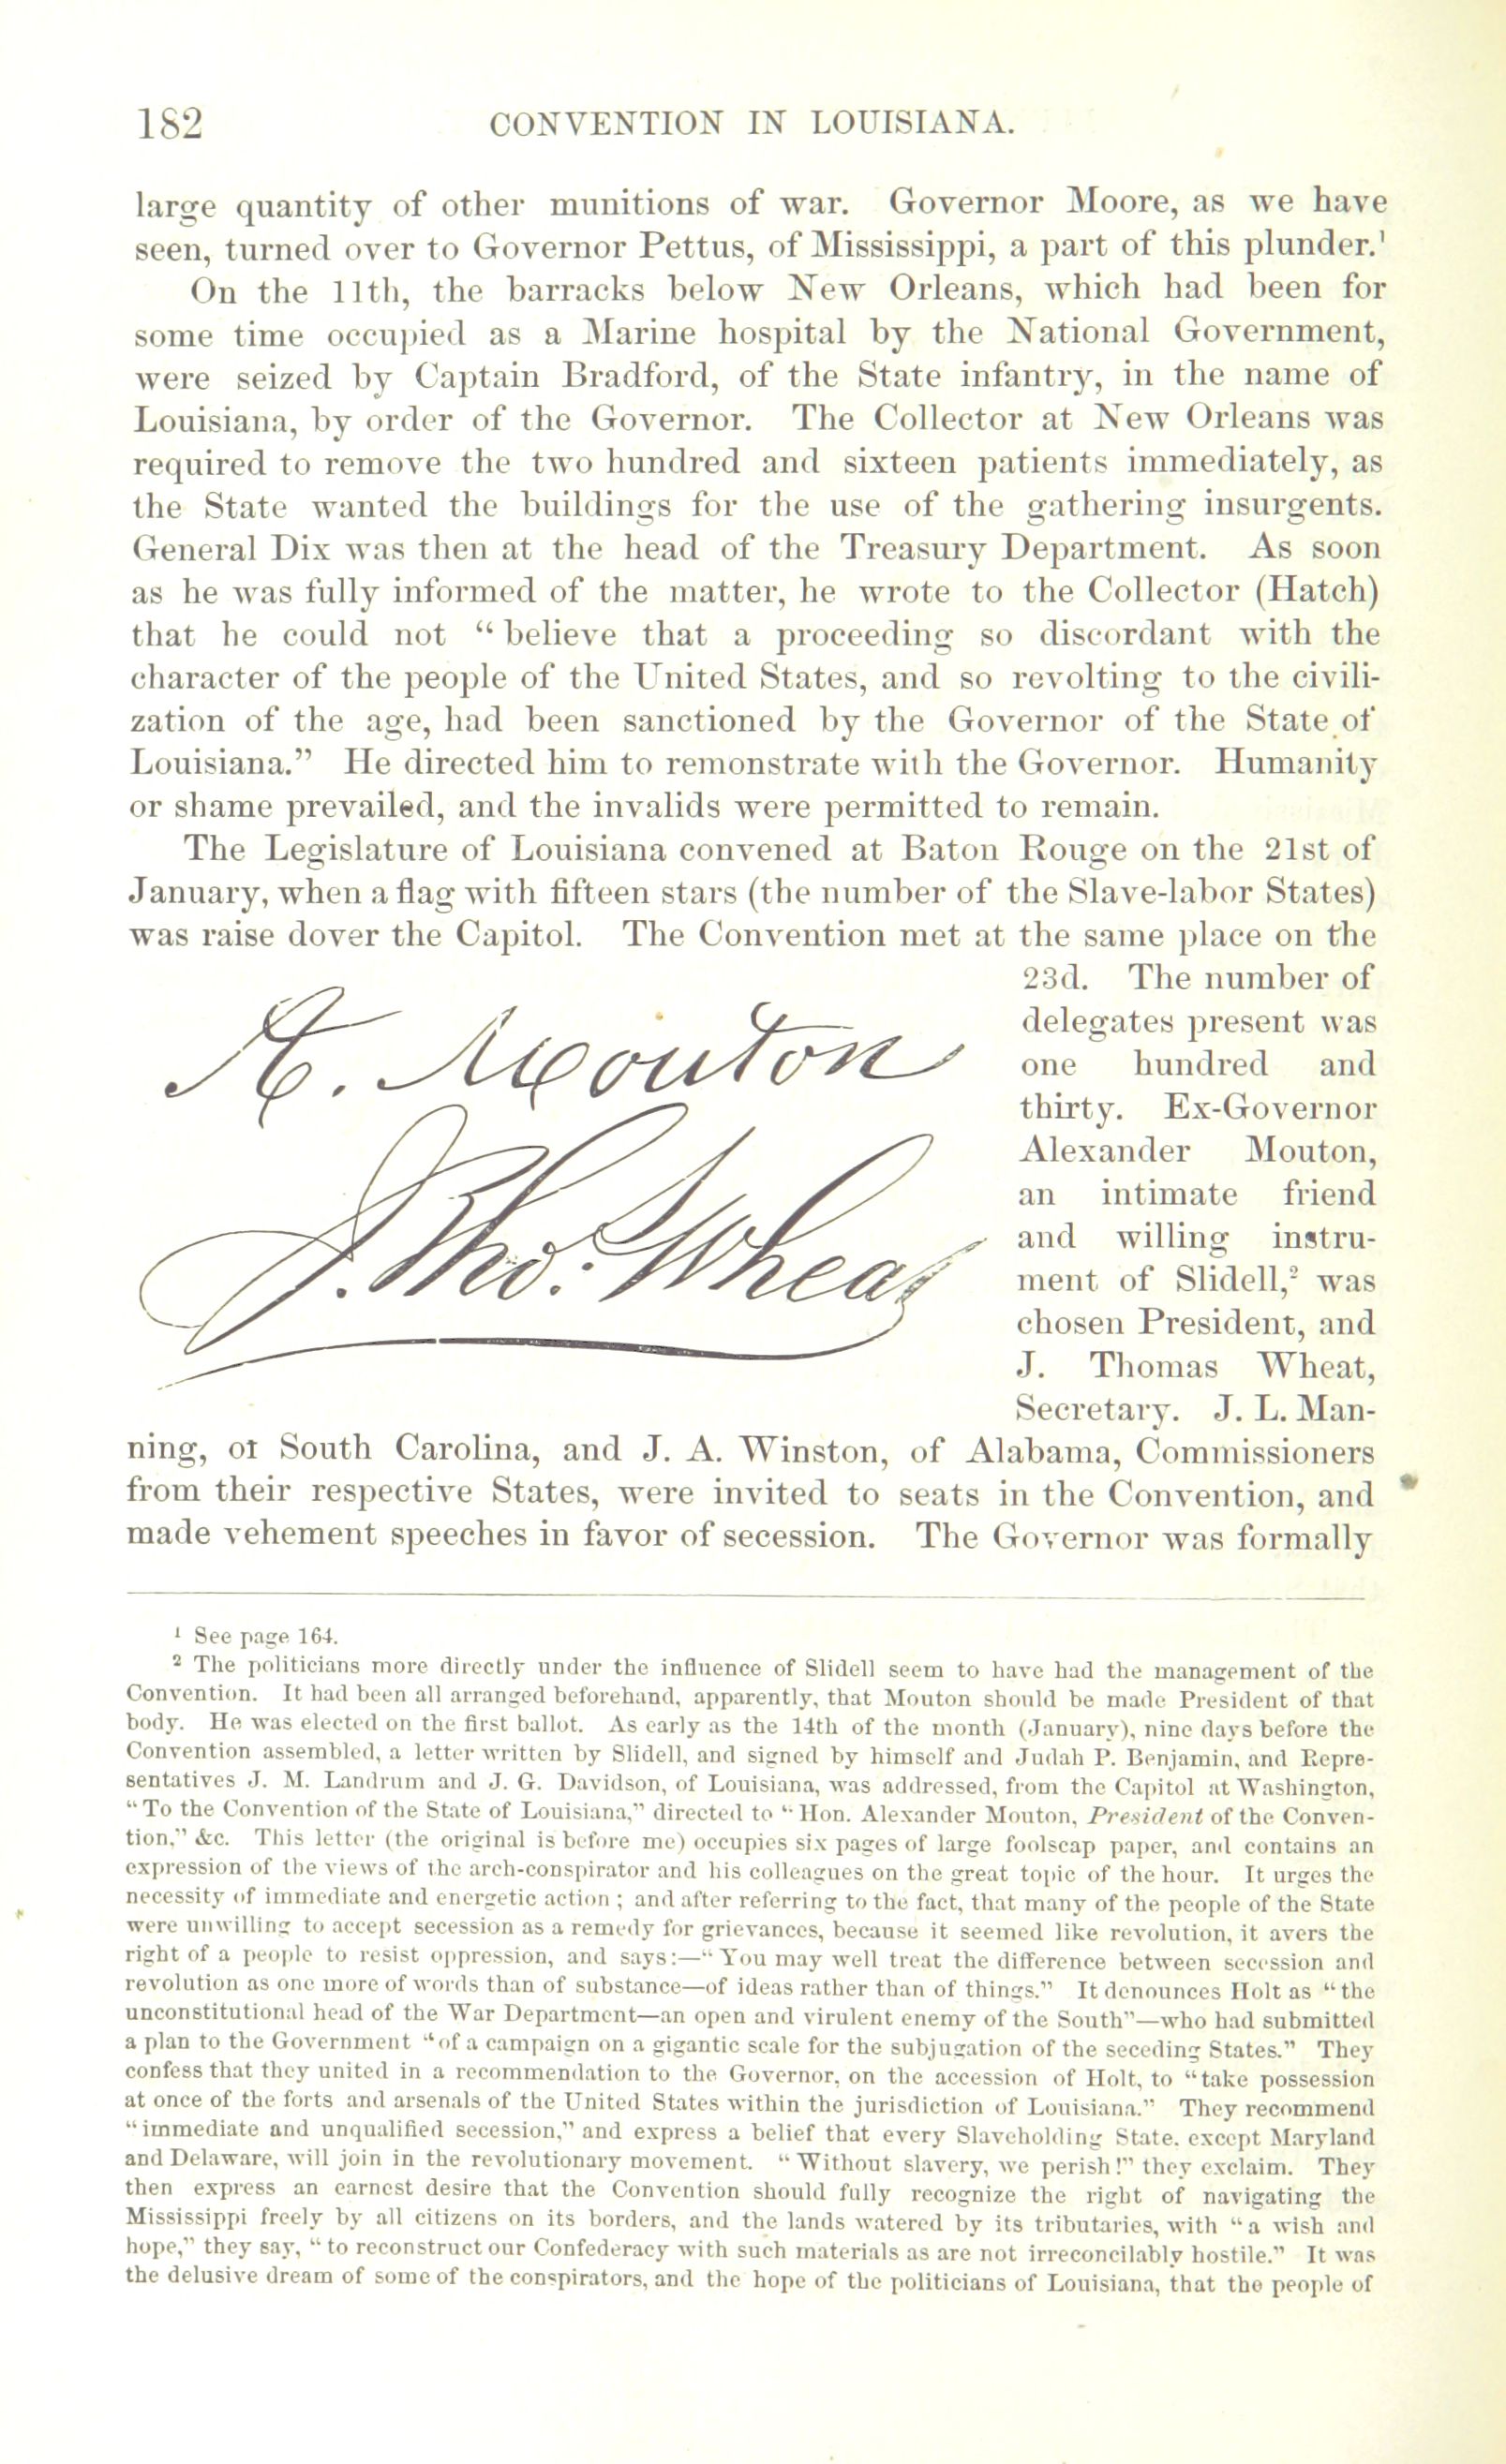 182 CONVENTION IN LOUISIANA.
large quantity of other munitions of war. Governor Moore, as we have
seen, turned over to Governor Pettus, of Mississippi, a part of this plunder.¹
On the 11th, the barracks below New Orleans, which had been for
some time occupied as a Marine hospital by the National Government,
were seized by Captain Bradford, of the State infantry, in the name of
Louisiana, by order of the Governor. The Collector at New Orleans was
required to remove the two hundred and sixteen patients immediately, as
the State wanted the buildings for the use of the gathering insurgents.
General Dix was then at the head of the Treasury Department. As soon
as he was fully informed of the matter, he wrote to the Collector (Hatch)
that he could not “believe that a proceeding so discordant with the
character of the people of the United States, and so revolting to the civili-
zation of the age, had been sanctioned by the Governor of the State of
Louisiana.” He directed him to remonstrate with the Governor. Humanity
or shame prevailed, and the invalids were permitted to remain.
The Legislature of Louisiana convened at Baton Rouge on the 21st of
January, when a flag with fifteen stars (the number of the Slave-labor States)
was raise dover the Capitol. The Convention met at the same place on the
23d. The number of
delegates present was
one hundred and
thirty. Ex-Governor
Alexander Mouton,
an intimate friend
and willing instru-
ment of Slidell,² was
chosen President, and
J. Thomas Wheat,
Secretary. J. L. Man-
A. Mouton
J. Tho: Wheat
ning, of South Carolina, and J. A. Winston, of Alabama, Commissioners
from their respective States, were invited to seats in the Convention, and
made vehement speeches in favor of secession. The Governor was formally
¹ See page 164.
² The politicians more directly under the influence of Slidell seem to have had the management of the
Convention. It had been all arranged beforehand, apparently, that Mouton should be made President of that
body. He was elected on the first ballot. As early as the 14th of the month (January), nine days before the
Convention assembled, a letter written by Slidell, and signed by himself and Judah P. Benjamin, and Repre-
sentatives J. M. Landrum and J. G. Davidson, of Louisiana, was addressed, from the Capitol at Washington,
“To the Convention of the State of Louisiana,” directed to “Hon. Alexander Mouton, President of the Conven-
tion,” &c. This letter (the original is before me) occupies six pages of large foolscap paper, and contains an
expression of the views of the arch-conspirator and his colleagues on the great topic of the hour. It urges the
necessity of immediate and energetic action ; and after referring to the fact, that many of the people of the State
were unwilling to accept secession as a remedy for grievances, because it seemed like revolution, it avers the
right of a people to resist oppression, and says:—“You may well treat the difference between secession and
revolution as one more of words than of substance—of ideas rather than of things.” It denounces Holt as “the
unconstitutional head of the War Department—an open and virulent enemy of the South”—who had submitted
a plan to the Government “of a campaign on a gigantic scale for the subjugation of the seceding States.” They
confess that they united in a recommendation to the Governor, on the accession of Holt, to “take possession
at once of the forts and arsenals of the United States within the jurisdiction of Louisiana.” They recommend
“immediate and unqualified secession,” and express a belief that every Slaveholding State, except Maryland
and Delaware, will join in the revolutionary movement. “Without slavery, we perish!” they exclaim. They
then express an earnest desire that the Convention should fully recognize the right of navigating the
Mississippi freely by all citizens on its borders, and the lands watered by its tributaries, with “a wish and
hope,” they say, “to reconstruct our Confederacy with such materials as are not irreconcilably hostile.” It was
the delusive dream of some of the conspirators, and the hope of the politicians of Louisiana, that the people of